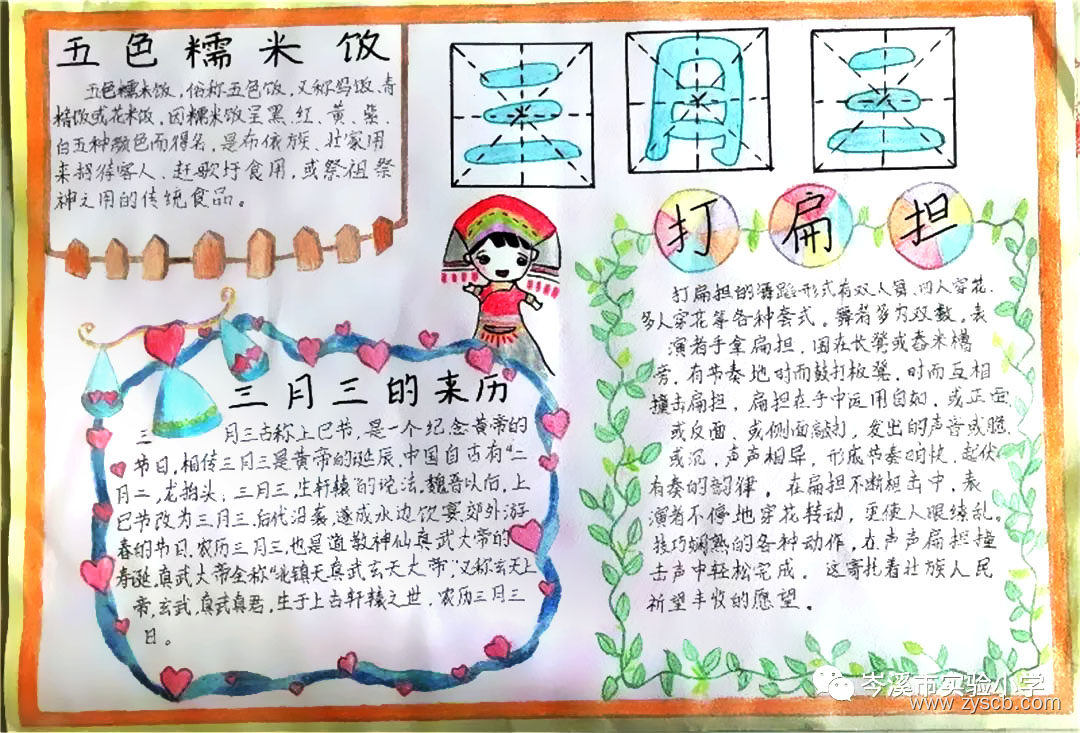 五色糯米饭
五色糯米饭,俗称五色饭,又称乌饭、青
精饭或花米饭,因糯米饭呈黑、红、黄、紫、
白五种颜色而得名。是布依族、壮家用
来招待客人、赶歌圩食用,或祭祖祭
神之用的传统食品。
三月三
三月三的来历
三月三古称上巳节,是一个纪念黄帝的
节日,相传三月三是黄帝的诞辰,中国自古有“二
月二,龙抬头;三月三,生轩辕”的说法,魏晋以后,上
巳节改为三月三,后代沿袭,遂成水边饮宴,郊外游
春的节日,农历三月三,也是道教神仙真武大帝的
寿诞,真武大帝全称“北镇天真武玄天大帝”,又称玄天上
帝,玄武,真武真君,生于上古轩辕之世,农历三月三
日。
打扁担
打扁担的舞蹈形式有双人舞、四人穿花、
多人穿花等各种套式。舞者多为双数,表
演者手拿扁担,围在长凳或舂米槽
旁,有节奏地时而敲打板凳,时而互相
撞击扁担,扁担在手中运用自如,或正面
或反面,或侧面敲打,发出的声音或脆
或沉,声声相异,形成节奏明快,起伏
有奏的韵律。在扁担不断相击中,表
演者不停地穿花转动,更使人眼缭乱。
技巧娴熟的各种动作,在声声扁担撞
击声中轻松完成。这寄托着壮族人民
祈望丰收的愿望。
岑溪市实验小学
www.zyscb.com